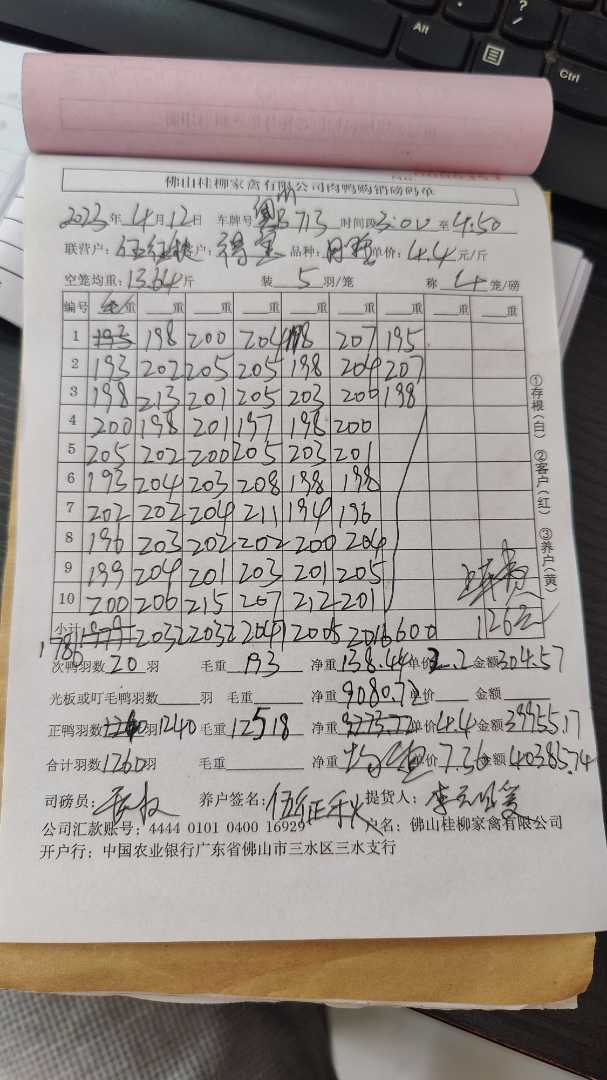 佛山桂柳家禽有限公司肉鸭购销磅码单
2023年 4月12日 车牌号 713 时间段3:00至4:50
联营户: 客户: 得 品种: 单价: 4.4 元/斤
空笼均重: 13.64斤 装 5 羽/笼 称 4 笼/磅
编号 重 重 重 重 重 重 重 重 重
1 193 198 200 204 198 207 195
2 193 202 205 205 198 204 207
3 198 213 201 205 203 206 198
4 200 198 201 197 198 200
5 205 202 200 205 203 201
6 193 204 203 208 198 198
7 202 202 204 211 194 196
8 196 203 202 202 200 204
9 199 204 201 203 201 205
10 200 206 215 207 212 201
小计 1786 1979 2032 2032 2047 2005 2016 600
126
次鸭羽数 20 羽 毛重 193 净重 138.44 单价 2.2 金额 304.57
光板或叮毛鸭羽数 羽 毛重 净重 9080.72 单价 金额
正鸭羽数 羽 1240 毛重 12518 净重 单价 4.4 金额 39955.17
合计羽数 1260 羽 毛重 净重 均 单价 7.36 金额 40385.74
司磅员: 养户签名: 伍 提货人: 李
公司汇款账号: 4444 0101 0400 16929 户名: 佛山桂柳家禽有限公司
开户行: 中国农业银行广东省佛山市三水区三水支行
①存根(白) ②客户(红) ③养户(黄)